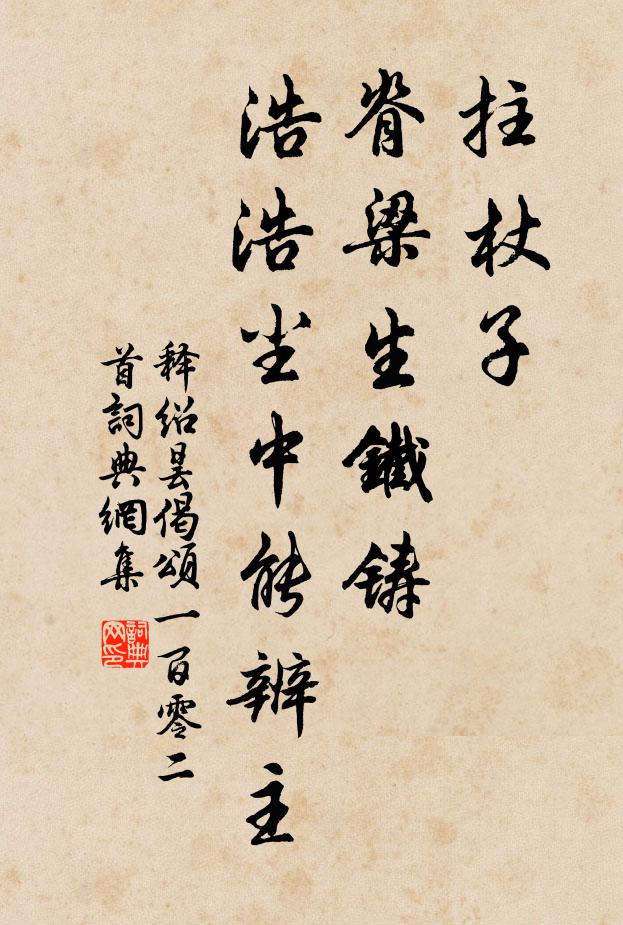 拄杖子
脊梁生鐵鑄
浩浩尘中能辨主
释绍昙偈頌一百零二
首詞典網集
詞典
网印